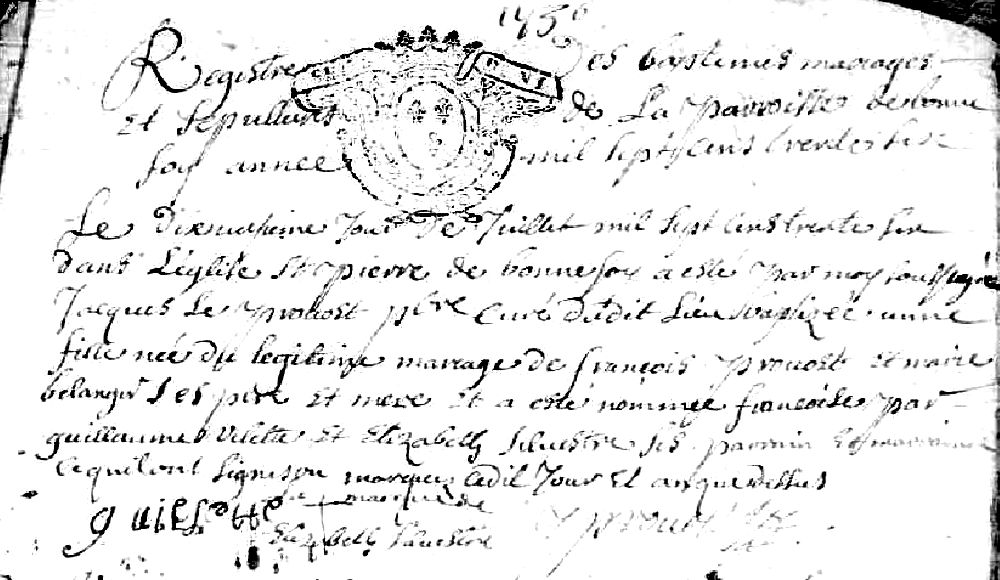 1736
Registre des baptêmes mariages
Et sepultures de La parroisse de bonne
foy annee mil sept cens trente six
Le dixneufieme Jour De Juillet mil sept cens trente six
dans L'eglise St pierre de bonnefoy a esté par moy soussigné
Jacques Le provost pbre Curé dudit Lieu baptizée une
fille née du legitime mariage de françois provost et marie
belanger ses pere et mere et a esté nommée françoise par
guillaume Vilette et Elizabeth Siluestre ses parrain et marraine
lequel ont signé ou marqué ledit Jour et an que dessus
marque de
Elizabeth Siluestre
G Vilette
J prouost